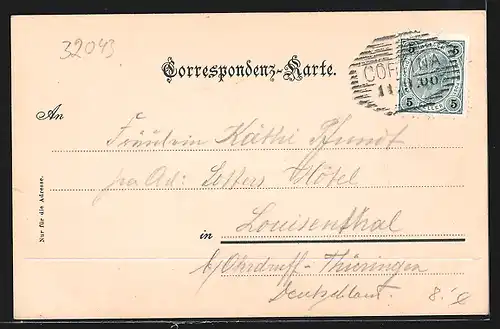 32043
Correspondenz-Karte.
5 5
COR INA
5 5
An
Fräulein Käthi Pfundt
pr Ad: Setters Hôtel
in Louisenthal
b/Ohrdruff - Thüringen
Deutschland.
Nur für die Adresse.